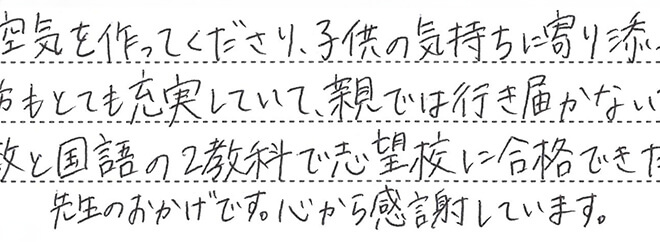 空気を作ってくださり、子供の気持ちに寄り添い
もとても充実していて、親では行き届かない
数と国語の2教科で志望校に合格できた
先生のおかげです。心から感謝しています。